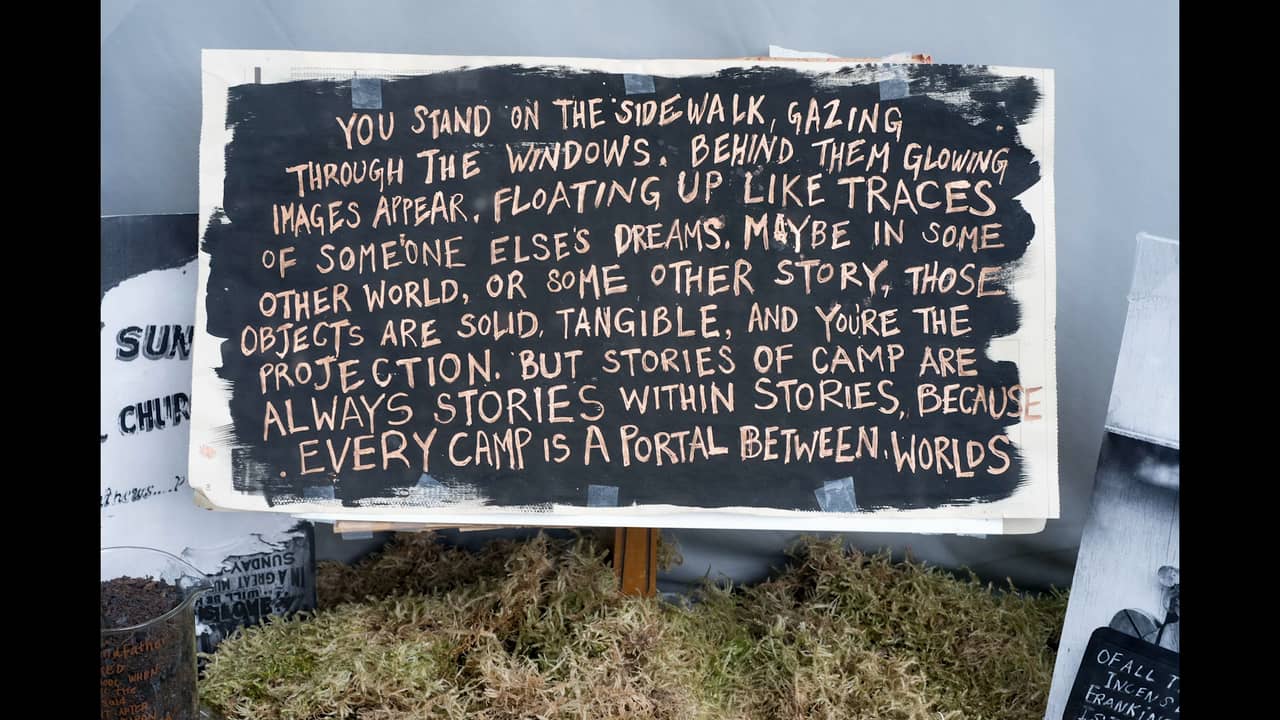 YOU STAND ON THE SIDEWALK, GAZING
THROUGH THE WINDOWS. BEHIND THEM GLOWING
IMAGES APPEAR. FLOATING UP LIKE TRACES
OF SOMEONE ELSE'S DREAMS. MAYBE IN SOME
OTHER WORLD, OR SOME OTHER STORY, THOSE
OBJECTS ARE SOLID, TANGIBLE, AND YOU'RE THE
PROJECTION. BUT STORIES OF CAMP ARE
ALWAYS STORIES WITHIN STORIES, BECAUSE
EVERY CAMP IS A PORTAL BETWEEN WORLDS
SUN
CHUR
SUNDAY
IN A GREAT
WILL BE
WHEN
the
AFTER
OF ALL T
INCENS
FRANKIN